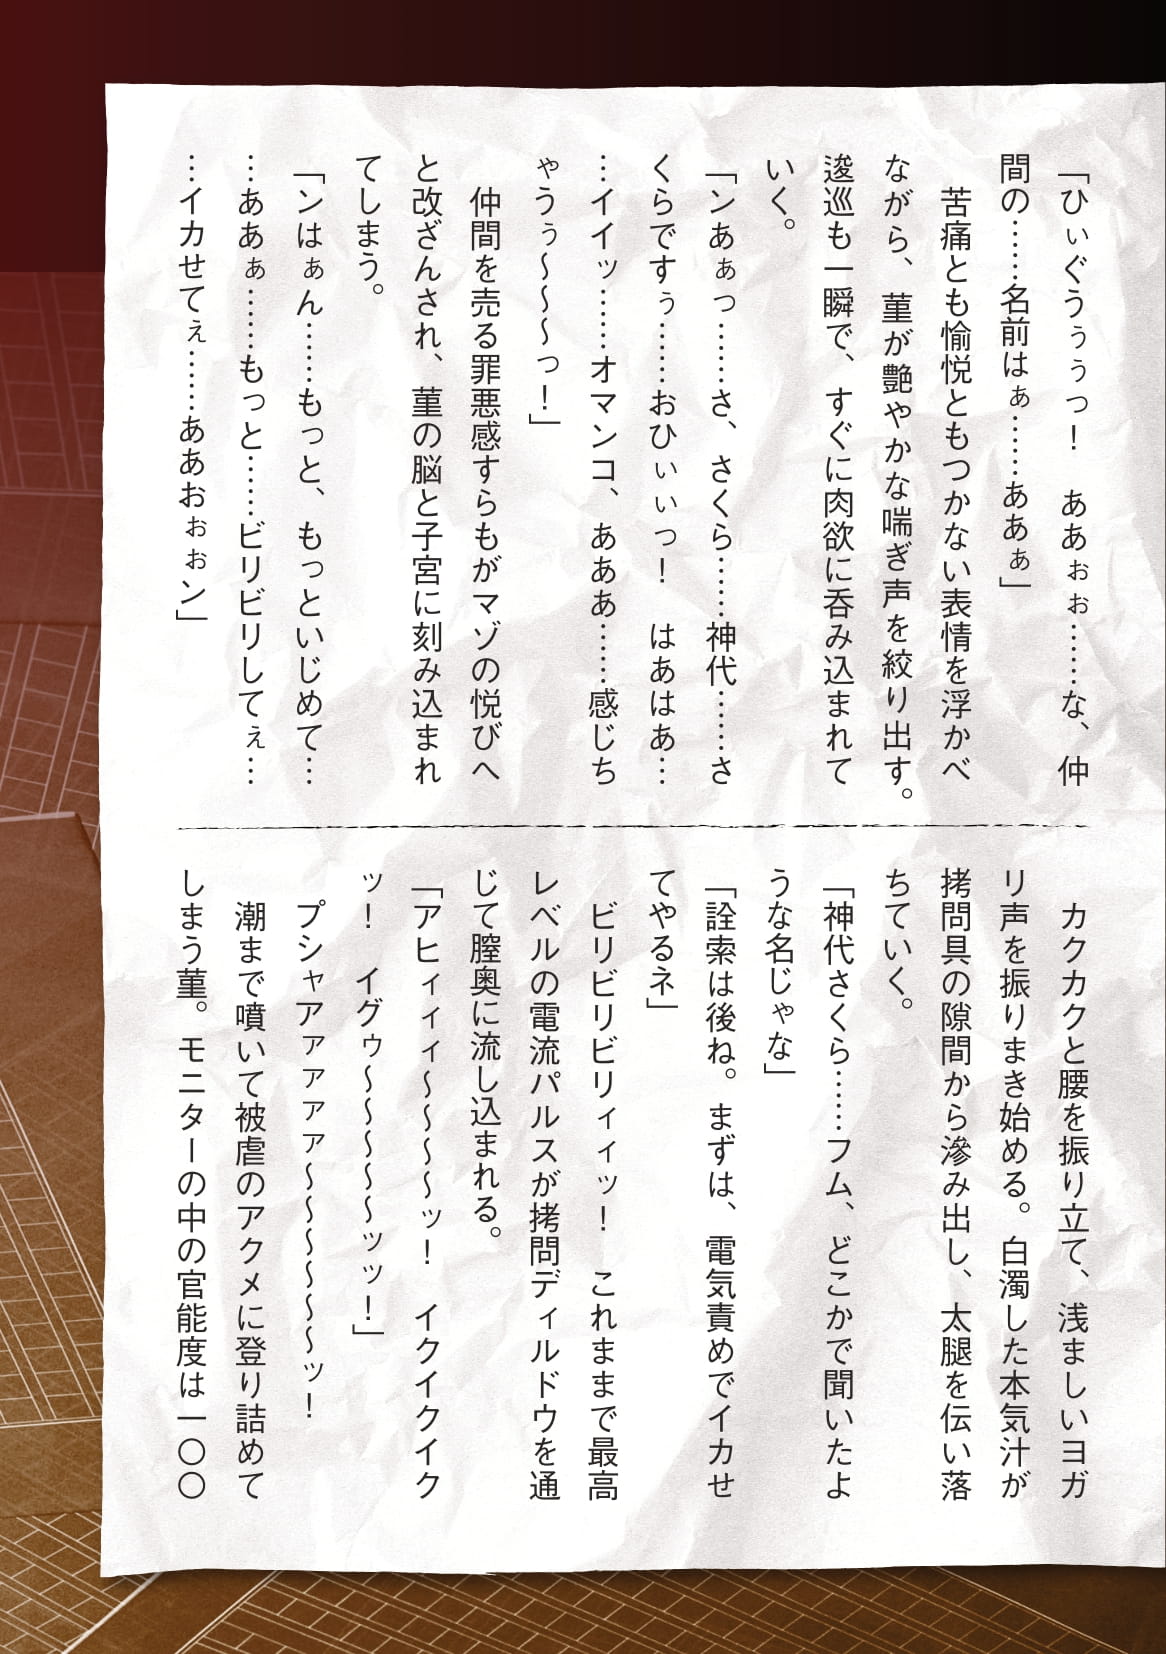 「ひぃぐうぅぅっ！　ああぉぉ……な、仲
間の……名前はぁ……ああぁ」
　苦痛とも愉悦ともつかない表情を浮かべ
ながら、菫が艶やかな喘ぎ声を絞り出す。
逡巡も一瞬で、すぐに肉欲に呑み込まれて
いく。
「ンあぁっ……さ、さくら……神代……さ
くらですぅ……おひぃぃっ！　はあはあ…
…イイッ……オマンコ、あああ……感じち
ゃうぅ～～～っ！」
　仲間を売る罪悪感すらもがマゾの悦びへ
と改ざんされ、菫の脳と子宮に刻み込まれ
てしまう。
「ンはぁん……もっと、もっといじめて…
…ああぁ……もっと……ビリビリしてぇ…
…イカせてぇ……ああおぉぉン」
　カクカクと腰を振り立て、浅ましいヨガ
リ声を振りまき始める。白濁した本気汁が
拷問具の隙間から滲み出し、太腿を伝い落
ちていく。
「神代さくら……フム、どこかで聞いたよ
うな名じゃな」
「詮索は後ね。まずは、電気責めでイカせ
てやるネ」
　ビリビリビリィィッ！　これままで最高
レベルの電流パルスが拷問ディルドウを通
じて膣奥に流し込まれる。
「アヒィィィ～～～～ッ！　イクイクイク
ッ！　イグゥ～～～～～ッッ！」
　プシャアァァァァ～～～～～～ッ！
　潮まで噴いて被虐のアクメに登り詰めて
しまう菫。モニターの中の官能度は一〇〇